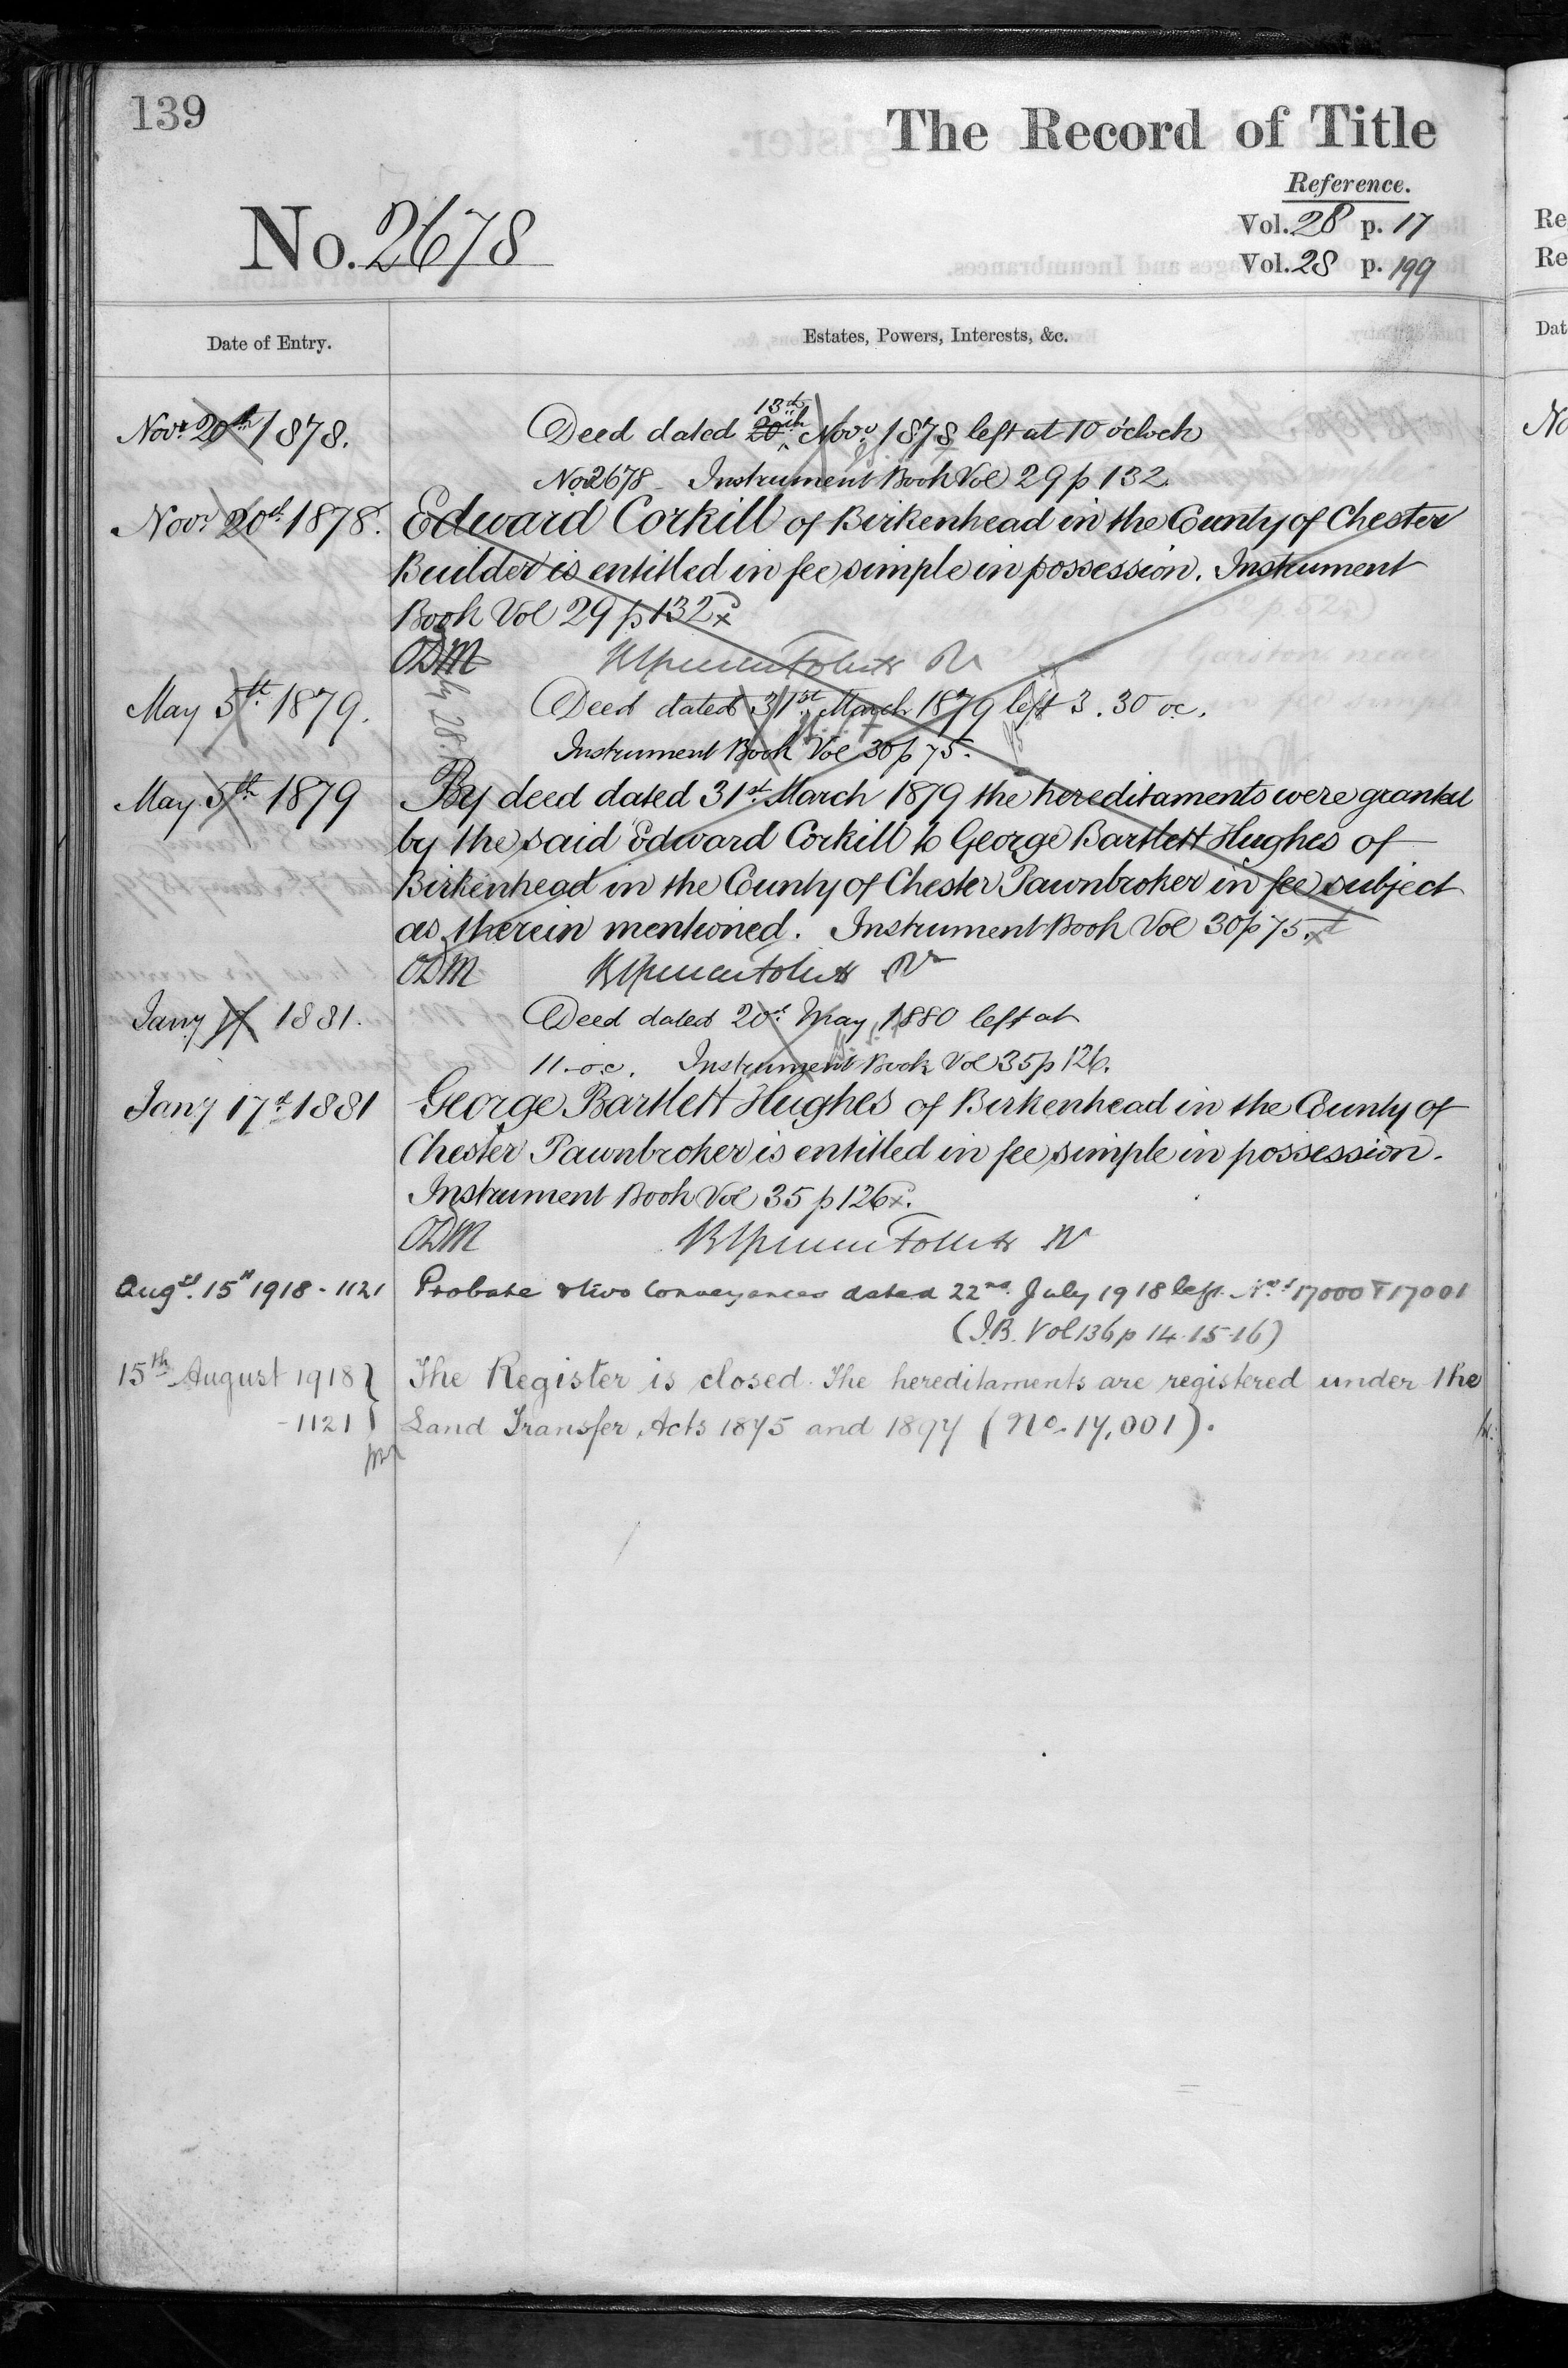 139
The Record of Title
Reference.
No. 2678
Vol. 28 p. 17
Vol. 28 p. 199
Date of Entry.
Estates, Powers, Interests, &c.
Novr 20th 1878. Deed dated 20th 13th Novr 1878 left at 10 o'clock
No 2678 - Instrument Book Vol 29 p 132.
Novr 20th 1878. Edward Corkill of Birkenhead in the County of Chester
Builder is entitled in fee simple in possession. Instrument
Book Vol 29 p 132
ODM
May 5th 1879. Deed dated 31st March 1879 left 3.30 oc.
Instrument Book Vol 30 p 75.
May 5th 1879 By deed dated 31st March 1879 the hereditaments were granted
by the said Edward Corkill to George Bartlett Hughes of
Birkenhead in the County of Chester Pawnbroker in fee subject
as therein mentioned. Instrument Book Vol 30 p 75.
ODM
Jany 17 1881. Deed dated 20th May 1880 left at
11-oc. Instrument Book Vol 35 p 126.
Jany 17th 1881 George Bartlett Hughes of Birkenhead in the County of
Chester Pawnbroker is entitled in fee simple in possession.
Instrument Book Vol 35 p 126
ODM
Augst. 15th 1918 - 1121 Probate & two Conveyances dated 22nd July 1918 left. Nos 17000 & 17001
(I.B. Vol 136 p 14-15-16)
15th August 1918 } The Register is closed. The hereditaments are registered under the
-1121 Land Transfer Acts 1875 and 1897 (No. 17,001).
Re
Re
Dat
No